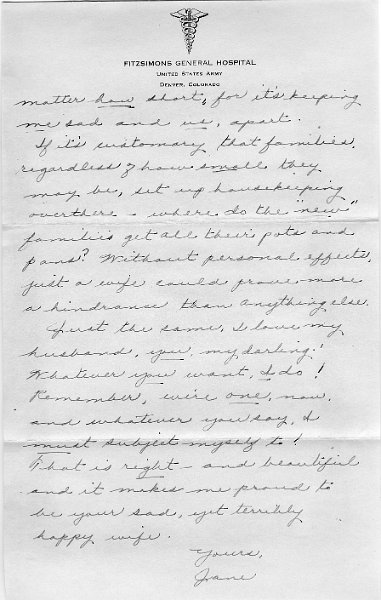 FITZSIMONS GENERAL HOSPITAL
UNITED STATES ARMY
DENVER, COLORADO
matter how short, for it's keeping
me sad and us, apart.
If it's customary that families,
regardless of how small they
may be, set up housekeeping
overthere - where do the "new"
families get all their pots and
pans? Without personal effects,
just a wife could prove more
a hindranse than anything else.
Just the same, I love my
husband, you, my darling!
Whatever you want, I do!
Remember, we're one, now
and whatever you say, I
must subject myself to!
That is right - and beautiful
and it makes me proud to
be your sad, yet terribly
happy wife.
Yours,
Jane